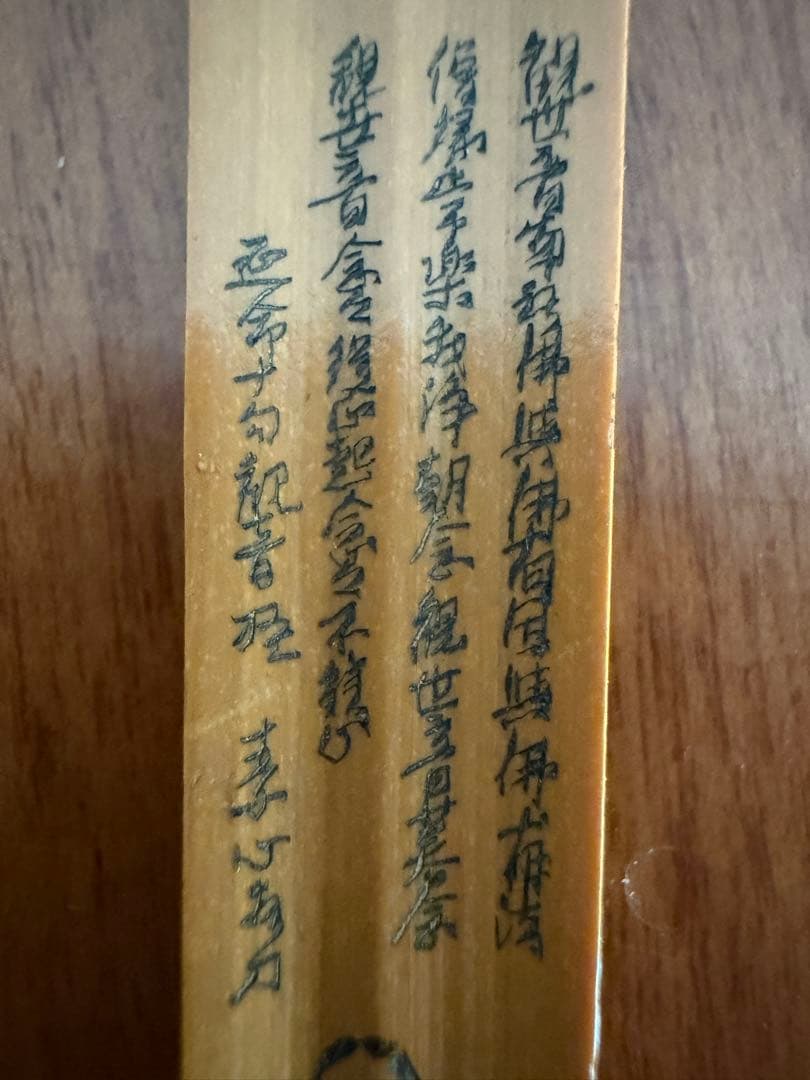 觀世音南無佛與佛有因與佛有緣佛法
僧緣常樂我淨朝念觀世音暮念
觀世音念念從心起念念不離心
延命十句觀音經 素心敬刀